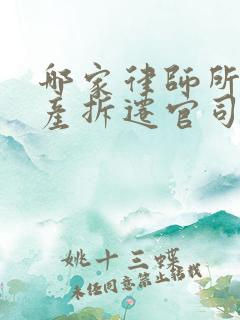 哪家律师所
产拆迁官司
姚十三蝶
未经同意禁止转载